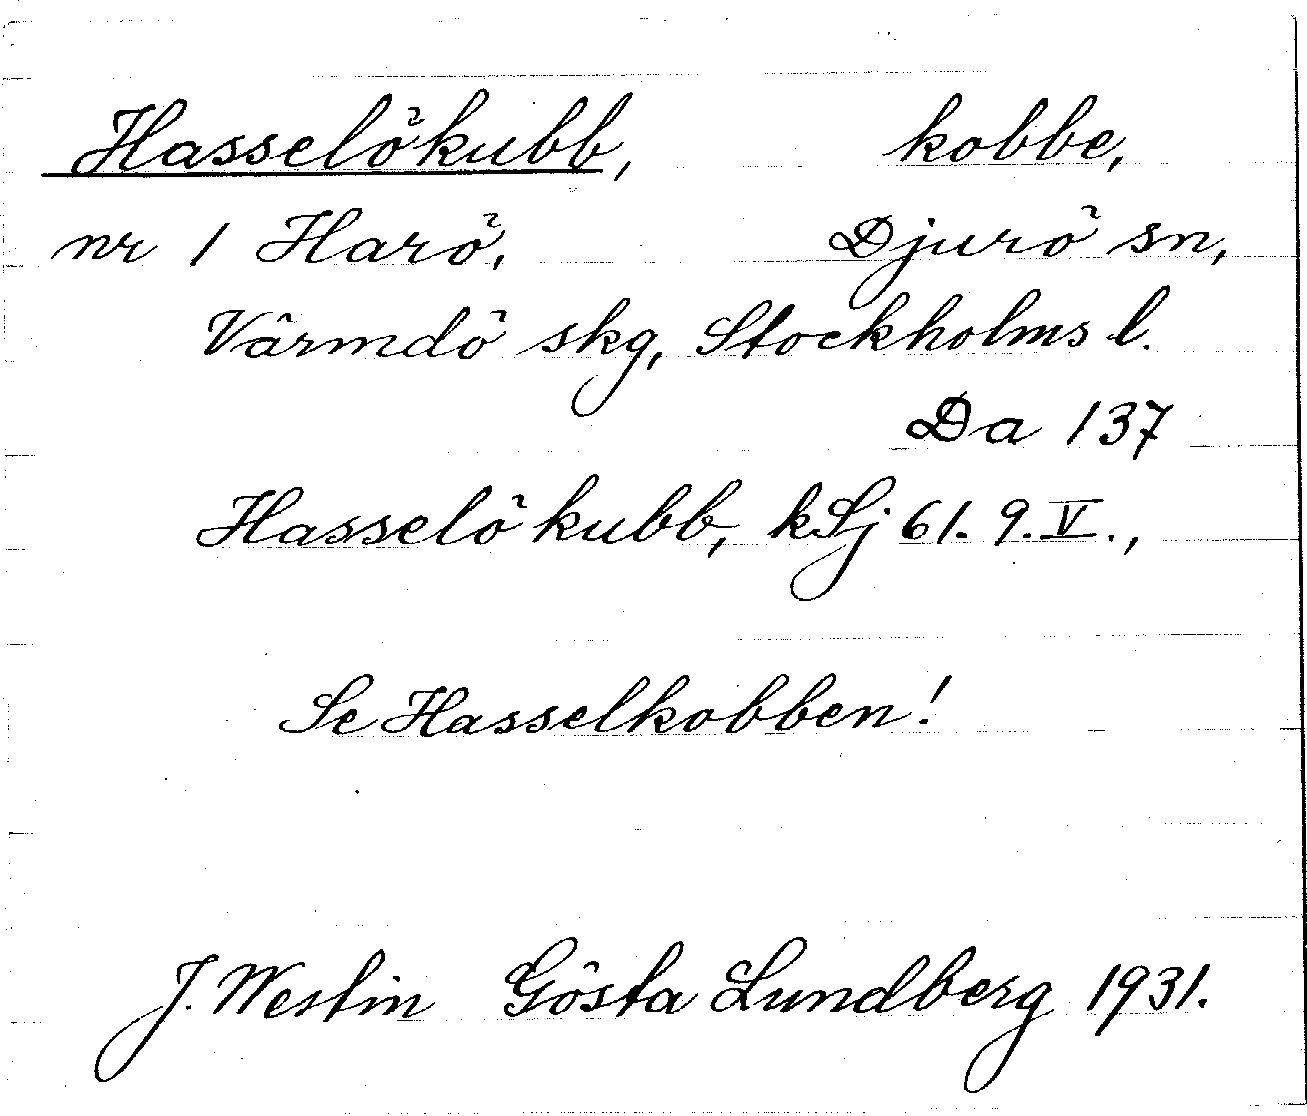 Hasselökubb, kobbe,
nr 1 Harö, Djurö sn,
Värmdö skg, Stockholms l.
Da 137
Hasselö kubb, kSj 61. 9. V.,
Se Hasselkobben!
J. Westin Gösta Lundberg 1931.